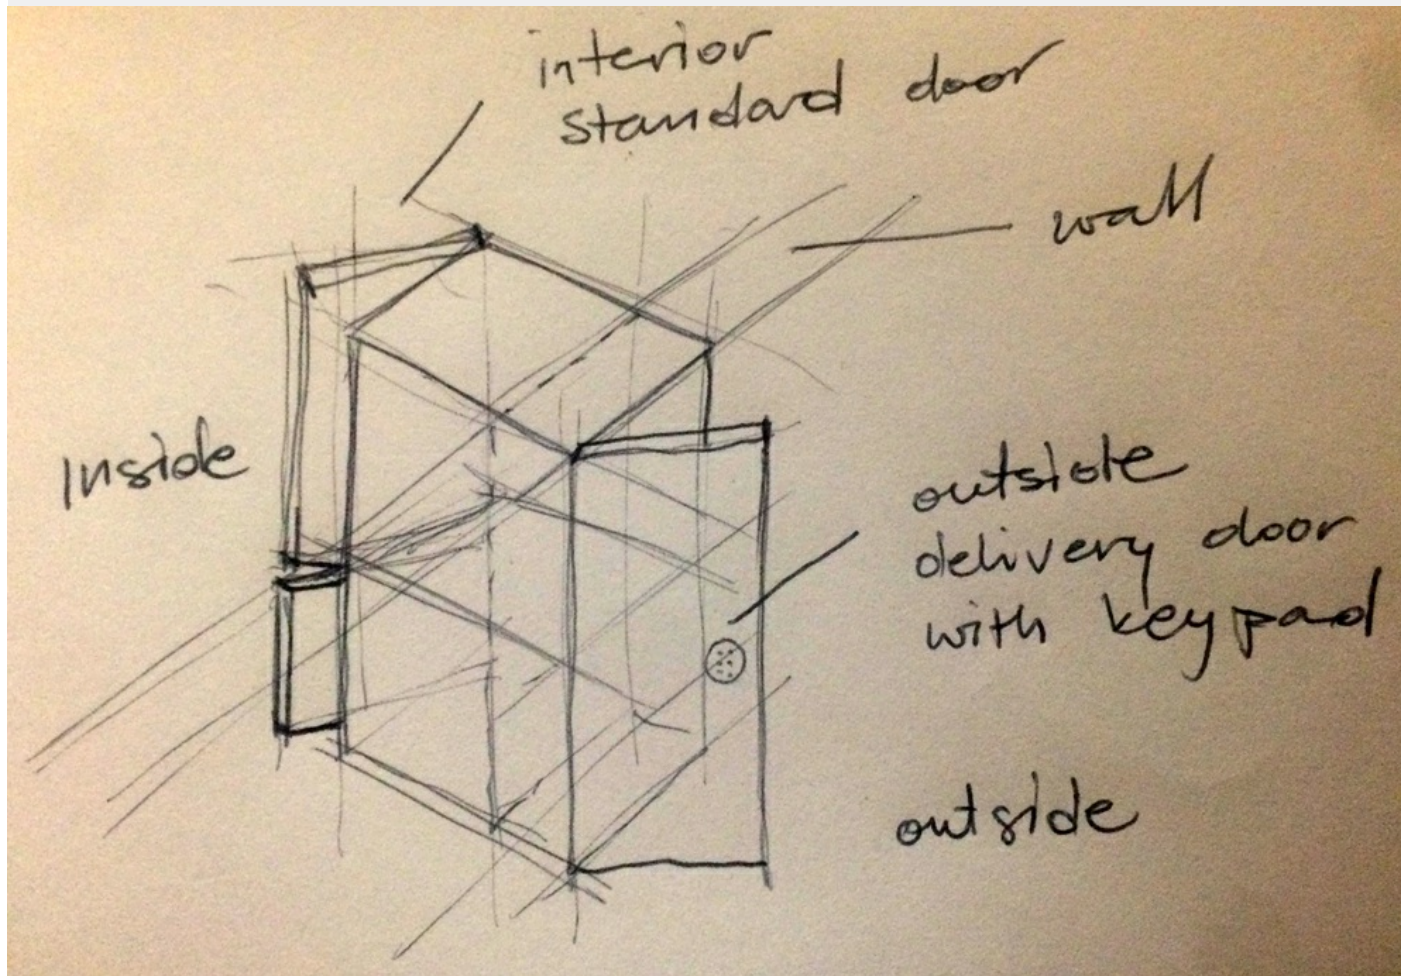 interior
standard door
wall
Inside
outside
delivery door
with keypad
outside